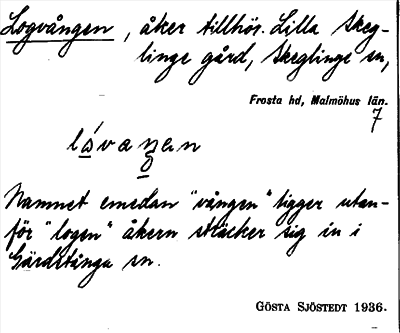 Logvången, åker tillhör. Lilla Skeg-
linge gård, Skeglinge sn,
Frosta hd, Malmöhus län.
7
Namnet emedan "vången" ligger utan-
för "logen" åkern sträcker sig in i
Gårdstånga sn.
GÖSTA SJÖSTEDT 1936.